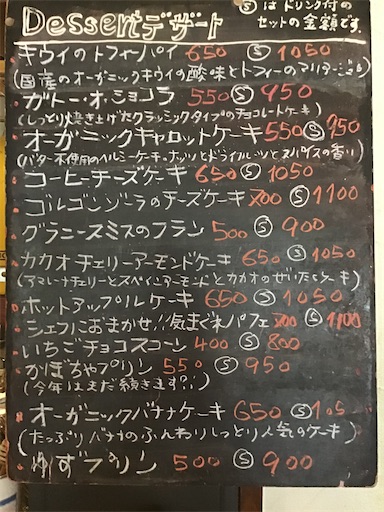 Dessertデザート
Ⓢは ドリンク付の
セットの金額です。
キウイのトフィーパイ 650 Ⓢ 1050
(国産のオーガニックキウイの酸味とトフィーのマリアージュ)
ガトー・オ・ショコラ 550 Ⓢ 950
(しっとり焼き上げたクラッシックタイプのチョコレートケーキ)
オーガニックキャロットケーキ 550 Ⓢ 950
(バター不使用のヘルシーケーキ。ナッツとドライフルーツとスパイスの香り)
コーヒーチーズケーキ 650 Ⓢ 1050
ゴルゴンゾーラのチーズケーキ 700 Ⓢ 1100
グラニースミスのフラン 500 Ⓢ 900
カカオチェリーアーモンドケーキ 650 Ⓢ 1050
(アマレーナチェリーとスペインアーモンドとカカオのぜいたくケーキ)
ホットアップルケーキ 650 Ⓢ 1050
シェフにおまかせ!!気まぐれパフェ 700 Ⓢ 1100
いちごチョコスコーン 400 Ⓢ 800
かぼちゃプリン 550 Ⓢ 950
(今年はまだ続きます?!)
オーガニックバナナケーキ 650 Ⓢ 105
(たっぷりバナナのふんわりしっとり人気のケーキ)
ゆずプリン 500 Ⓢ 900